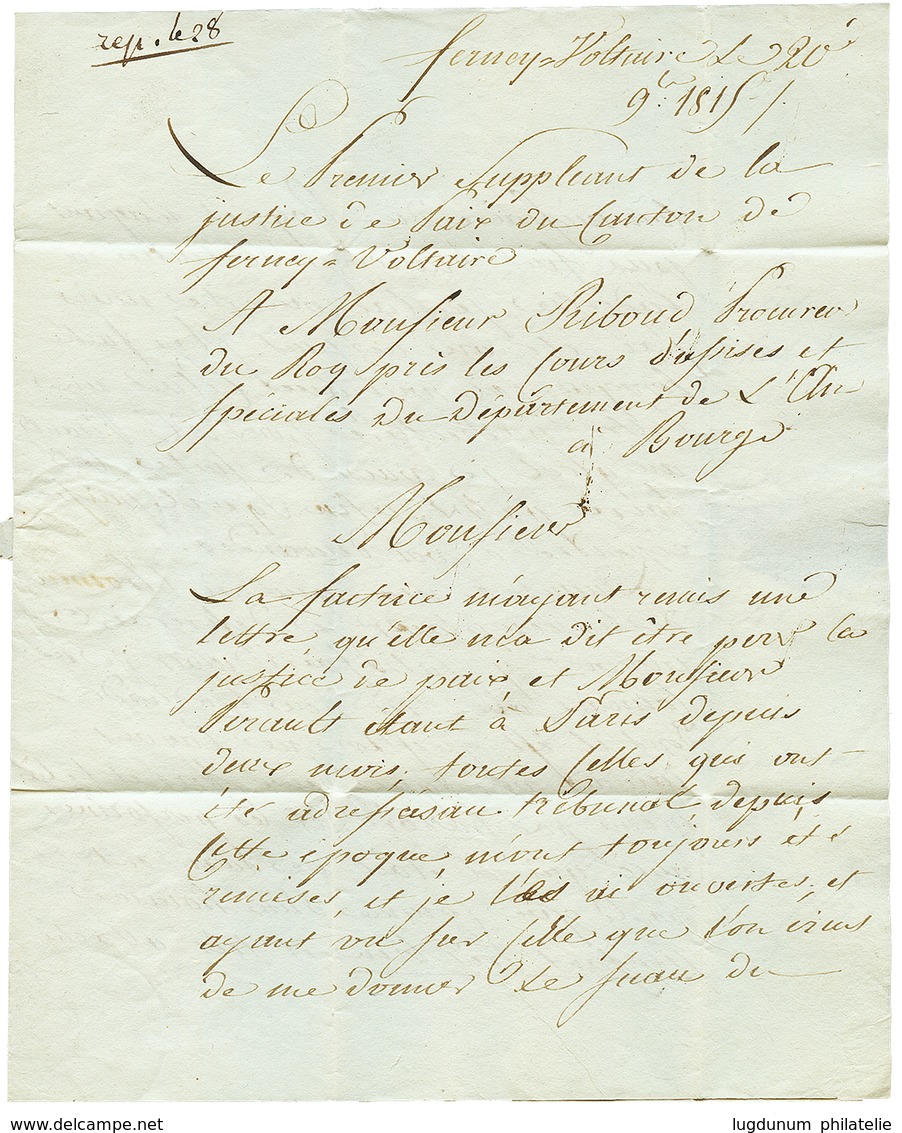 rep. le 28
ferney=Voltaire Le 20e
9bre 1815 /.
Le Premier Suppleant de la
justice de Paix du Canton de
ferney=Voltaire
A Monsieur Riboud Procureur
du Roy près les Cours d'assises et
spéciales du Département de L'Ain
à Bourg
Monsieur
La factrice m'ayant remis une
lettre, qu'elle m'a dit être pour la
justice de paix et Monsieur
Perault étant à Paris depuis
deux mois, toutes celles qui ont
été adressées au tribunal, depuis
cette époque, m'ont toujours été
remises, et je les ai ouvertes, et
ayant vu sur celle que l'on vient
de me donner Le Sceau du
www.delcampe.net
lugdunum philatelie